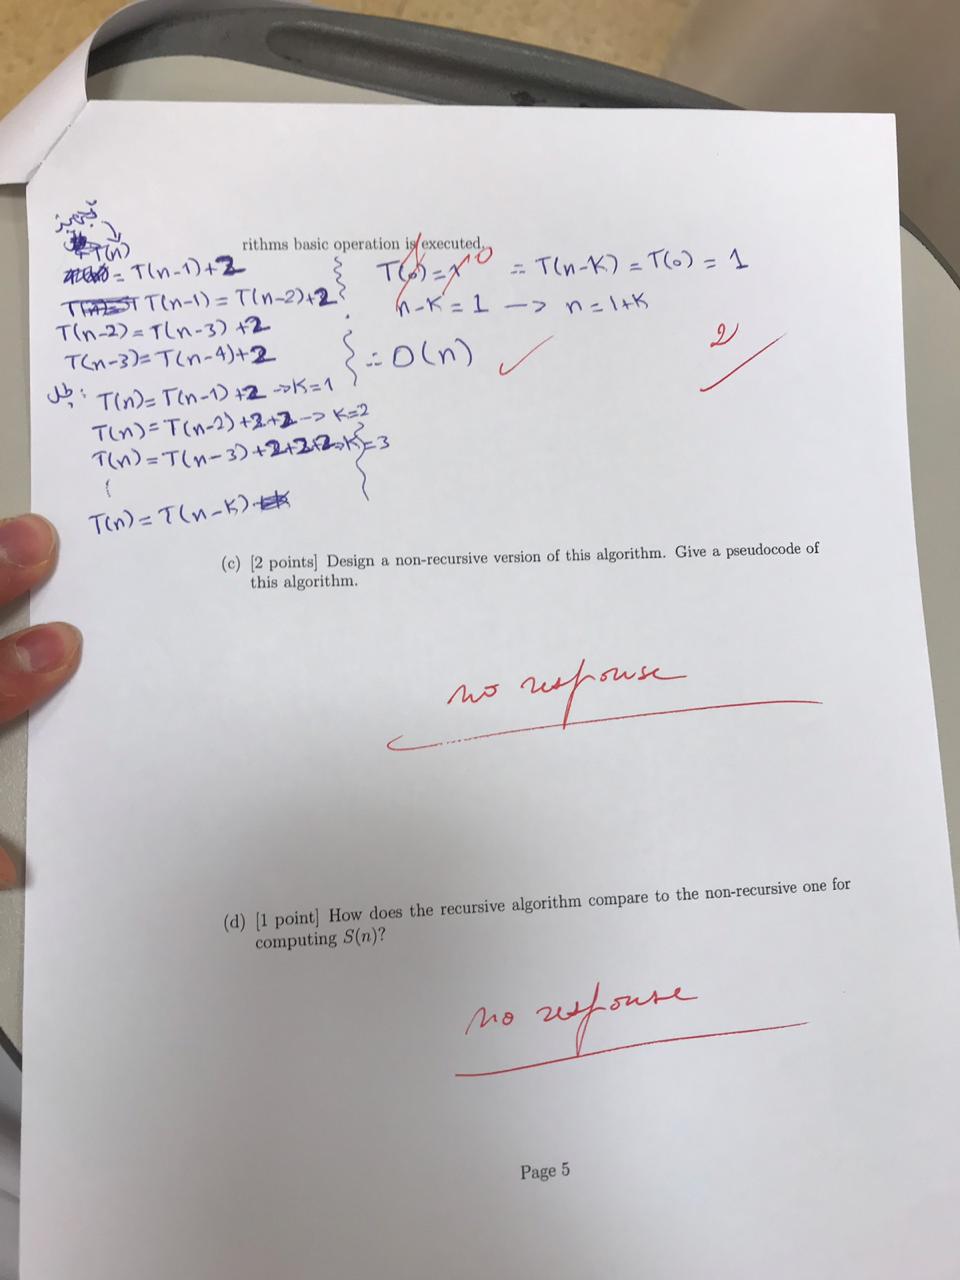 T(n)
rithms basic operation is executed.
= T(n-1)+2
T(n-1) = T(n-2)+2
T(n-2) = T(n-3) +2
T(n-3) = T(n-4)+2
T(n) = T(n-1) +2 → K=1
T(n) = T(n-2) +2+2 → K=2
T(n) = T(n-3) +2+2+2 → K=3
T(n) = T(n-K)
T(0) = 1 0 ∴ T(n-K) = T(0) = 1
n-K = 1 → n = 1+K
∴ O(n)
2
(c) [2 points] Design a non-recursive version of this algorithm. Give a pseudocode of
this algorithm.
no response
(d) [1 point] How does the recursive algorithm compare to the non-recursive one for
computing S(n)?
no response
Page 5